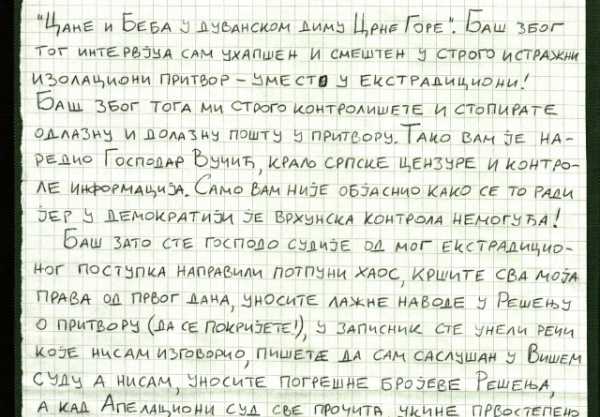 "Цане и Беба у дуванском диму Црне Горе". Баш због
тог интервјуа сам ухапшен и смештен у строго истражни
изолациони притвор – уместо у екстрадициони!
Баш због тога ми строго контролишете и стопирате
одлазну и долазну пошту у притвору. Тако вам је на-
редио Господар Вучић, краљ српске цензуре и контро-
ле информација. Само вам није објаснио како се то ради
јер у демократији је врхунска контрола немогућа!
Баш зато сте господо судије од мог екстрадицио-
ног поступка направили потпуни хаос, кршите сва моја
права од првог дана, уносите лажне наводе у Решењу
о притвору (да се покријете!), у записник сте унели речи
које нисам изговорио, пишете да сам саслушан у Вишем
суду а нисам, уносите погрешне бројеве Решења,
а кад Апелациони суд све прочита укине првостепено